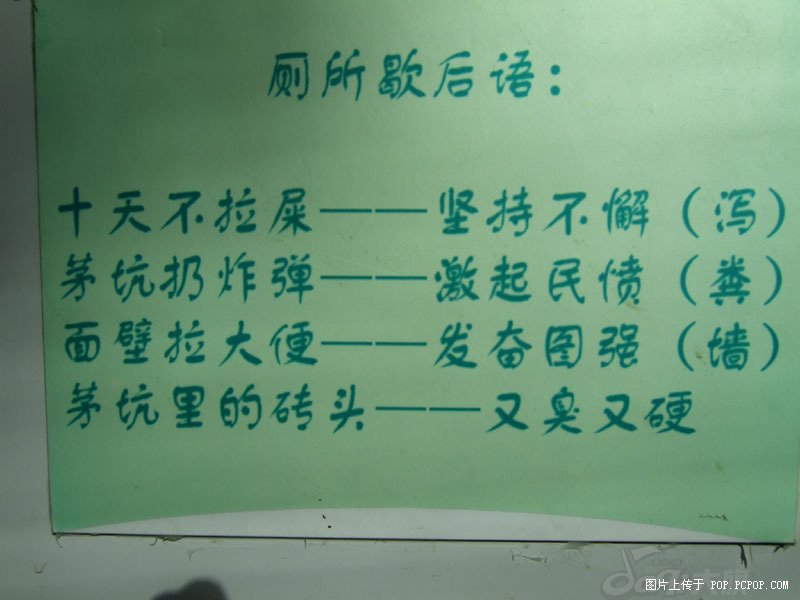 厕所歇后语：
十天不拉屎——坚持不懈（泻）
茅坑扔炸弹——激起民愤（粪）
面壁拉大便——发奋图强（墙）
茅坑里的砖头——又臭又硬
图片上传于 POP.PCPOP.COM